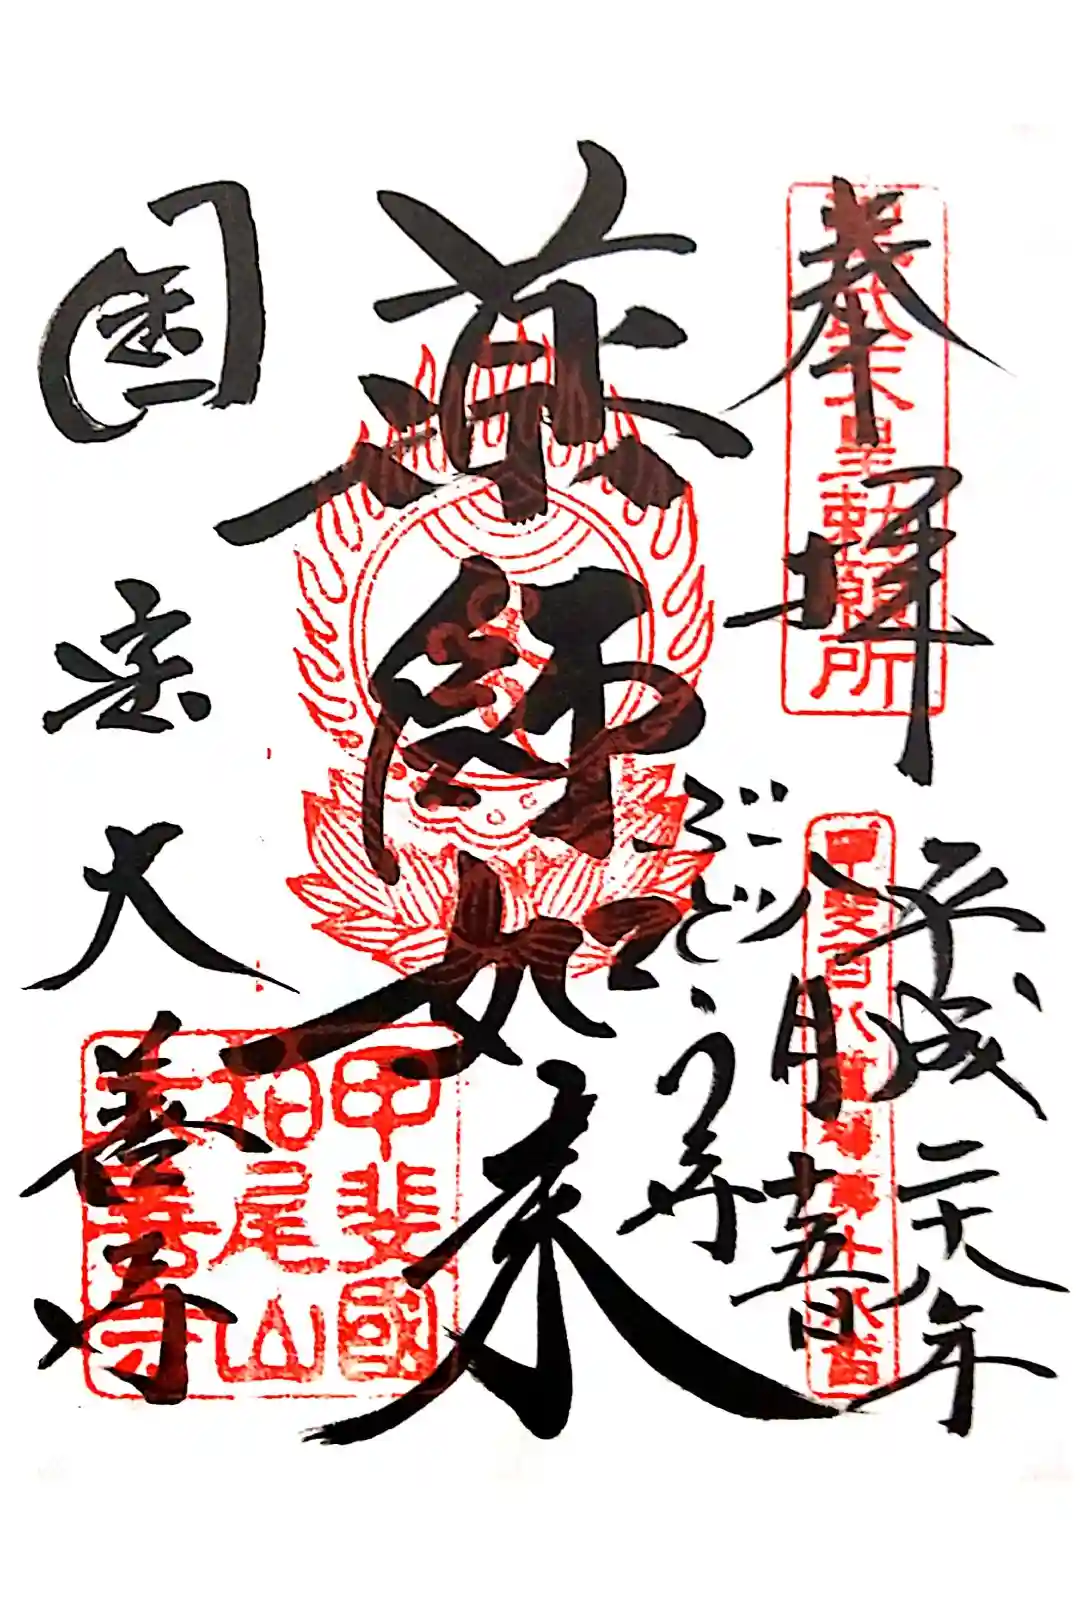 奉拝
聖武天皇勅願所
平成二十八年
八月十五日
甲斐百八霊場
ぶどう寺
薬師如来
国宝大善寺
甲斐國
柏尾山
大善寺